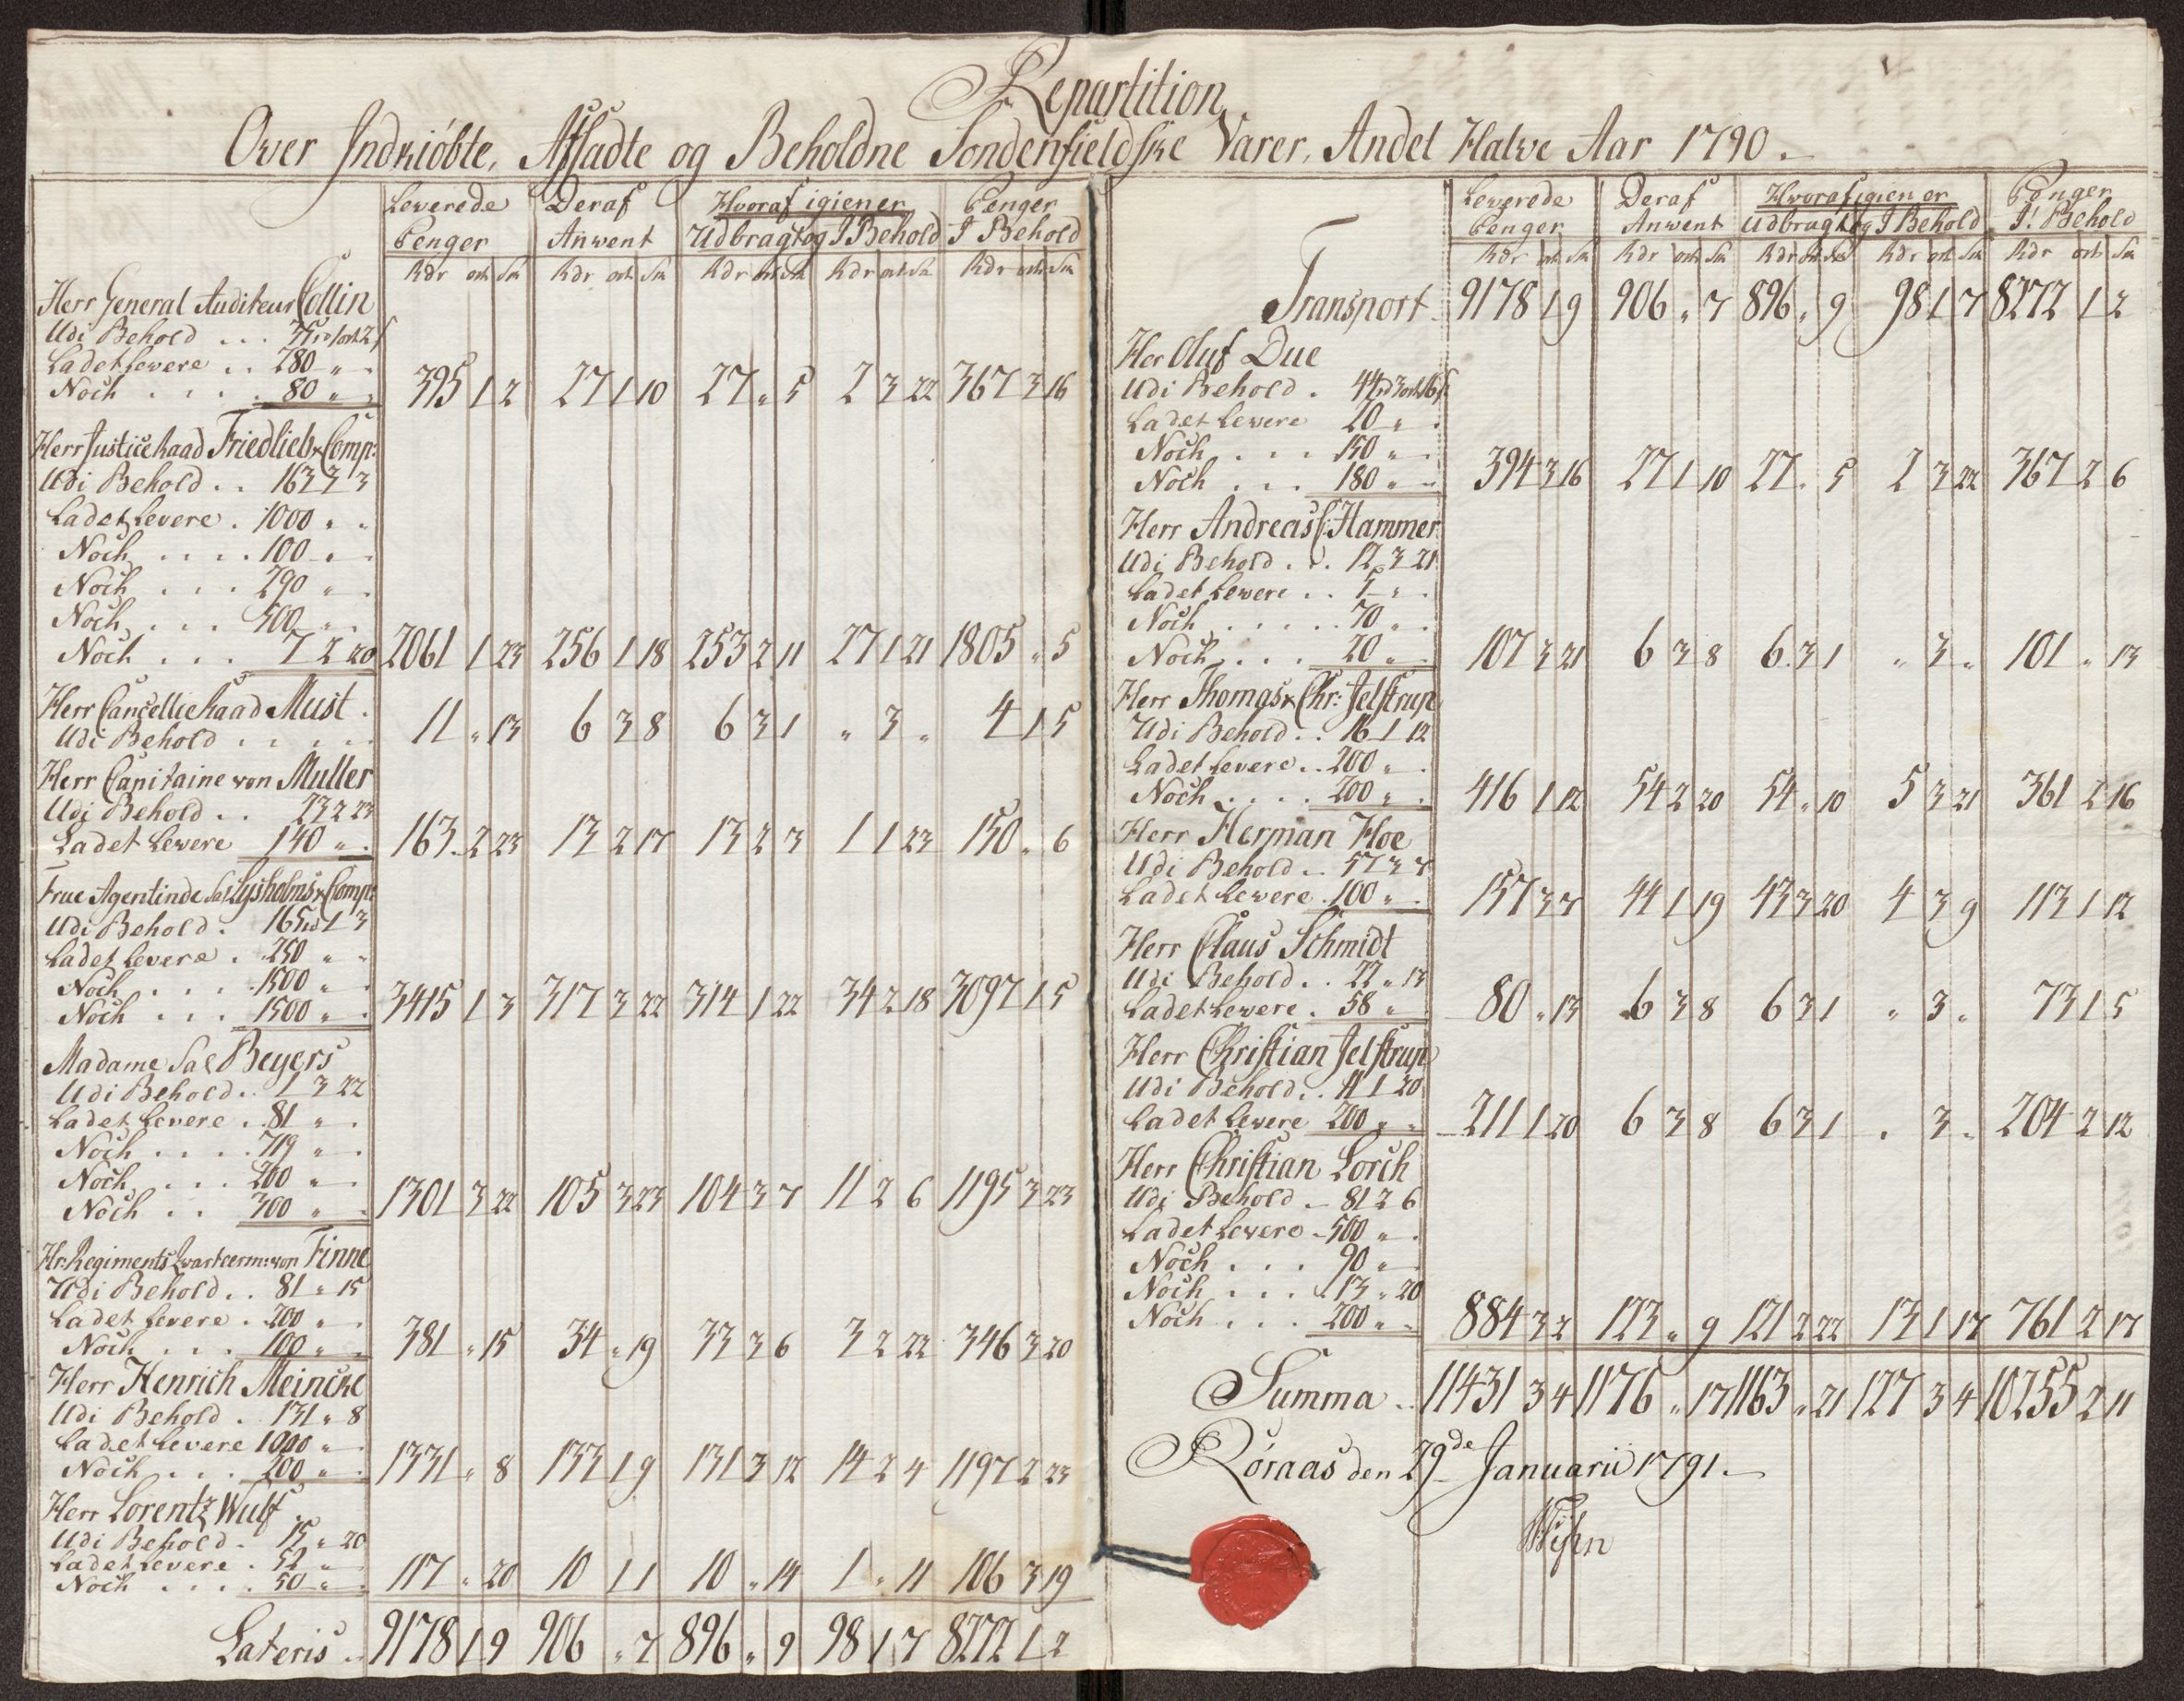 Repartition
Over Indkiöbte, Afsadte og Beholdne Sondenfieldske Varer, Andet Halve Aar 1790.
Leverede Penger | Deraf Anwent | Hvoraf igien er Udbragt og I Behold | Penger I Behold
Rdr ort Sk | Rdr ort Sk | Rdr ort Sk | Rdr ort Sk | Rdr ort Sk
Herr General Auditeur Collin
Udi Behold . . . 35 rd 1 ort 2 s
Ladet Levere . . 280 " .
Noch . . . . 80 " . | 395 1 2 | 27 1 10 | 27 " 5 | 2 3 22 | 367 3 16
Herr Justice Raad Friedlieb & Comp:
Udi Behold . . 163 2 3
Ladet Levere . 1000 " "
Noch . . . . 100 " .
Noch . . . 290 " .
Noch . . . 500 " .
Noch . . . 7 2 20 | 2061 1 23 | 256 1 18 | 253 2 11 | 27 1 21 | 1805 " 5
Herr Cancellie Raad Must .
Udi Behold . . . . . | 11 " 13 | 6 3 8 | 6 3 1 | " 3 " | 4 1 5
Herr Capitaine von Muller
Udi Behold . . 23 2 23
Ladet Levere 140 " . | 163 2 23 | 13 2 17 | 13 2 3 | 1 1 23 | 150 " 6
Frue Agentinde Sal Lysholms & Comp:
Udi Behold . 165 rd 1 3
Ladet Levere . 250 " "
Noch . . . . 1500 " .
Noch . . . 1500 " . | 3415 1 3 | 317 3 22 | 314 1 22 | 34 2 18 | 3097 1 5
Madame Sal Beyers
Udi Behold . . 1 3 22
Ladet Levere . . 81 " .
Noch . . . . 719 " .
Noch . . . 200 " .
Noch . . 300 " . | 1301 3 22 | 105 3 23 | 104 3 7 | 11 2 6 | 1195 3 23
Hr. Regiments Qvarteerm: von Finne
Udi Behold . . 81 " 15
Ladet Levere . 200 " .
Noch . . . 100 " . | 381 " 15 | 34 " 19 | 33 3 6 | 3 2 22 | 346 3 20
Herr Henrich Meincke
Udi Behold . 131 " 8
Ladet Levere 1000 " .
Noch . . . 200 " . | 1331 " 8 | 133 1 9 | 131 3 12 | 14 2 4 | 1197 2 23
Herr Lorentz Wulf
Udi Behold . 15 " 20
Ladet Levere . 52 " .
Noch . . . . 50 " . | 117 " 20 | 10 1 1 | 10 " 14 | 1 " 11 | 106 3 19
Lateris . . 9178 1 9 | 906 " 7 | 896 " 9 | 98 1 7 | 8272 1 2
Leverede Penger | Deraf Anwent | Hvoraf igien er Udbragt og I Behold | Penger I Behold
Rdr ort Sk | Rdr ort Sk | Rdr ort Sk | Rdr ort Sk | Rdr ort Sk
Transport . 9178 1 9 | 906 " 7 | 896 " 9 | 98 1 7 | 8272 1 2
Her Oluf Due
Udi Behold . 44 rd 3 ort 16 s
Ladet Levere 20 " .
Noch . . . 150 " .
Noch . . . 180 " " | 394 3 16 | 27 1 10 | 27 " 5 | 2 3 22 | 367 2 6
Herr Andreas C: Hammer
Udi Behold . . . 12 3 21
Ladet Levere . . 5 " .
Noch . . . . . 70 " .
Noch . . . 20 " . | 107 3 21 | 6 3 8 | 6 3 1 | " 3 " | 101 " 13
Herr Thomas & Chr: Jelstrup
Udi Behold . . 16 1 12
Ladet Levere . . 200 " .
Noch . . . . 200 " . | 416 1 12 | 54 2 20 | 54 " 10 | 5 3 21 | 361 2 16
Herr Herman Hoe
Udi Behold . . 57 3 7
Ladet Levere . 100 " . | 157 3 7 | 44 1 19 | 43 3 20 | 4 3 9 | 113 1 12
Herr Claus Schmidt
Udi Behold . . 22 " 13
Ladet Levere . 58 " | 80 " 13 | 6 3 8 | 6 3 1 | " 3 " | 73 1 5
Herr Christian Jelstrup
Udi Behold . . 11 1 20
Ladet Levere 200 " " | 211 1 20 | 6 3 8 | 6 3 1 | . 3 " | 204 2 12
Herr Christian Lorch
Udi Behold . 81 2 6
Ladet Levere 500 " .
Noch . . . 90 " .
Noch . . . 13 " 20
Noch . . . 200 " " | 884 3 2 | 123 " 9 | 121 2 22 | 13 1 17 | 761 2 17
Summa . . 11431 3 4 | 1176 " 17 | 1163 " 21 | 127 3 4 | 10255 2 11
Röraas den 29de Januarii 1791.